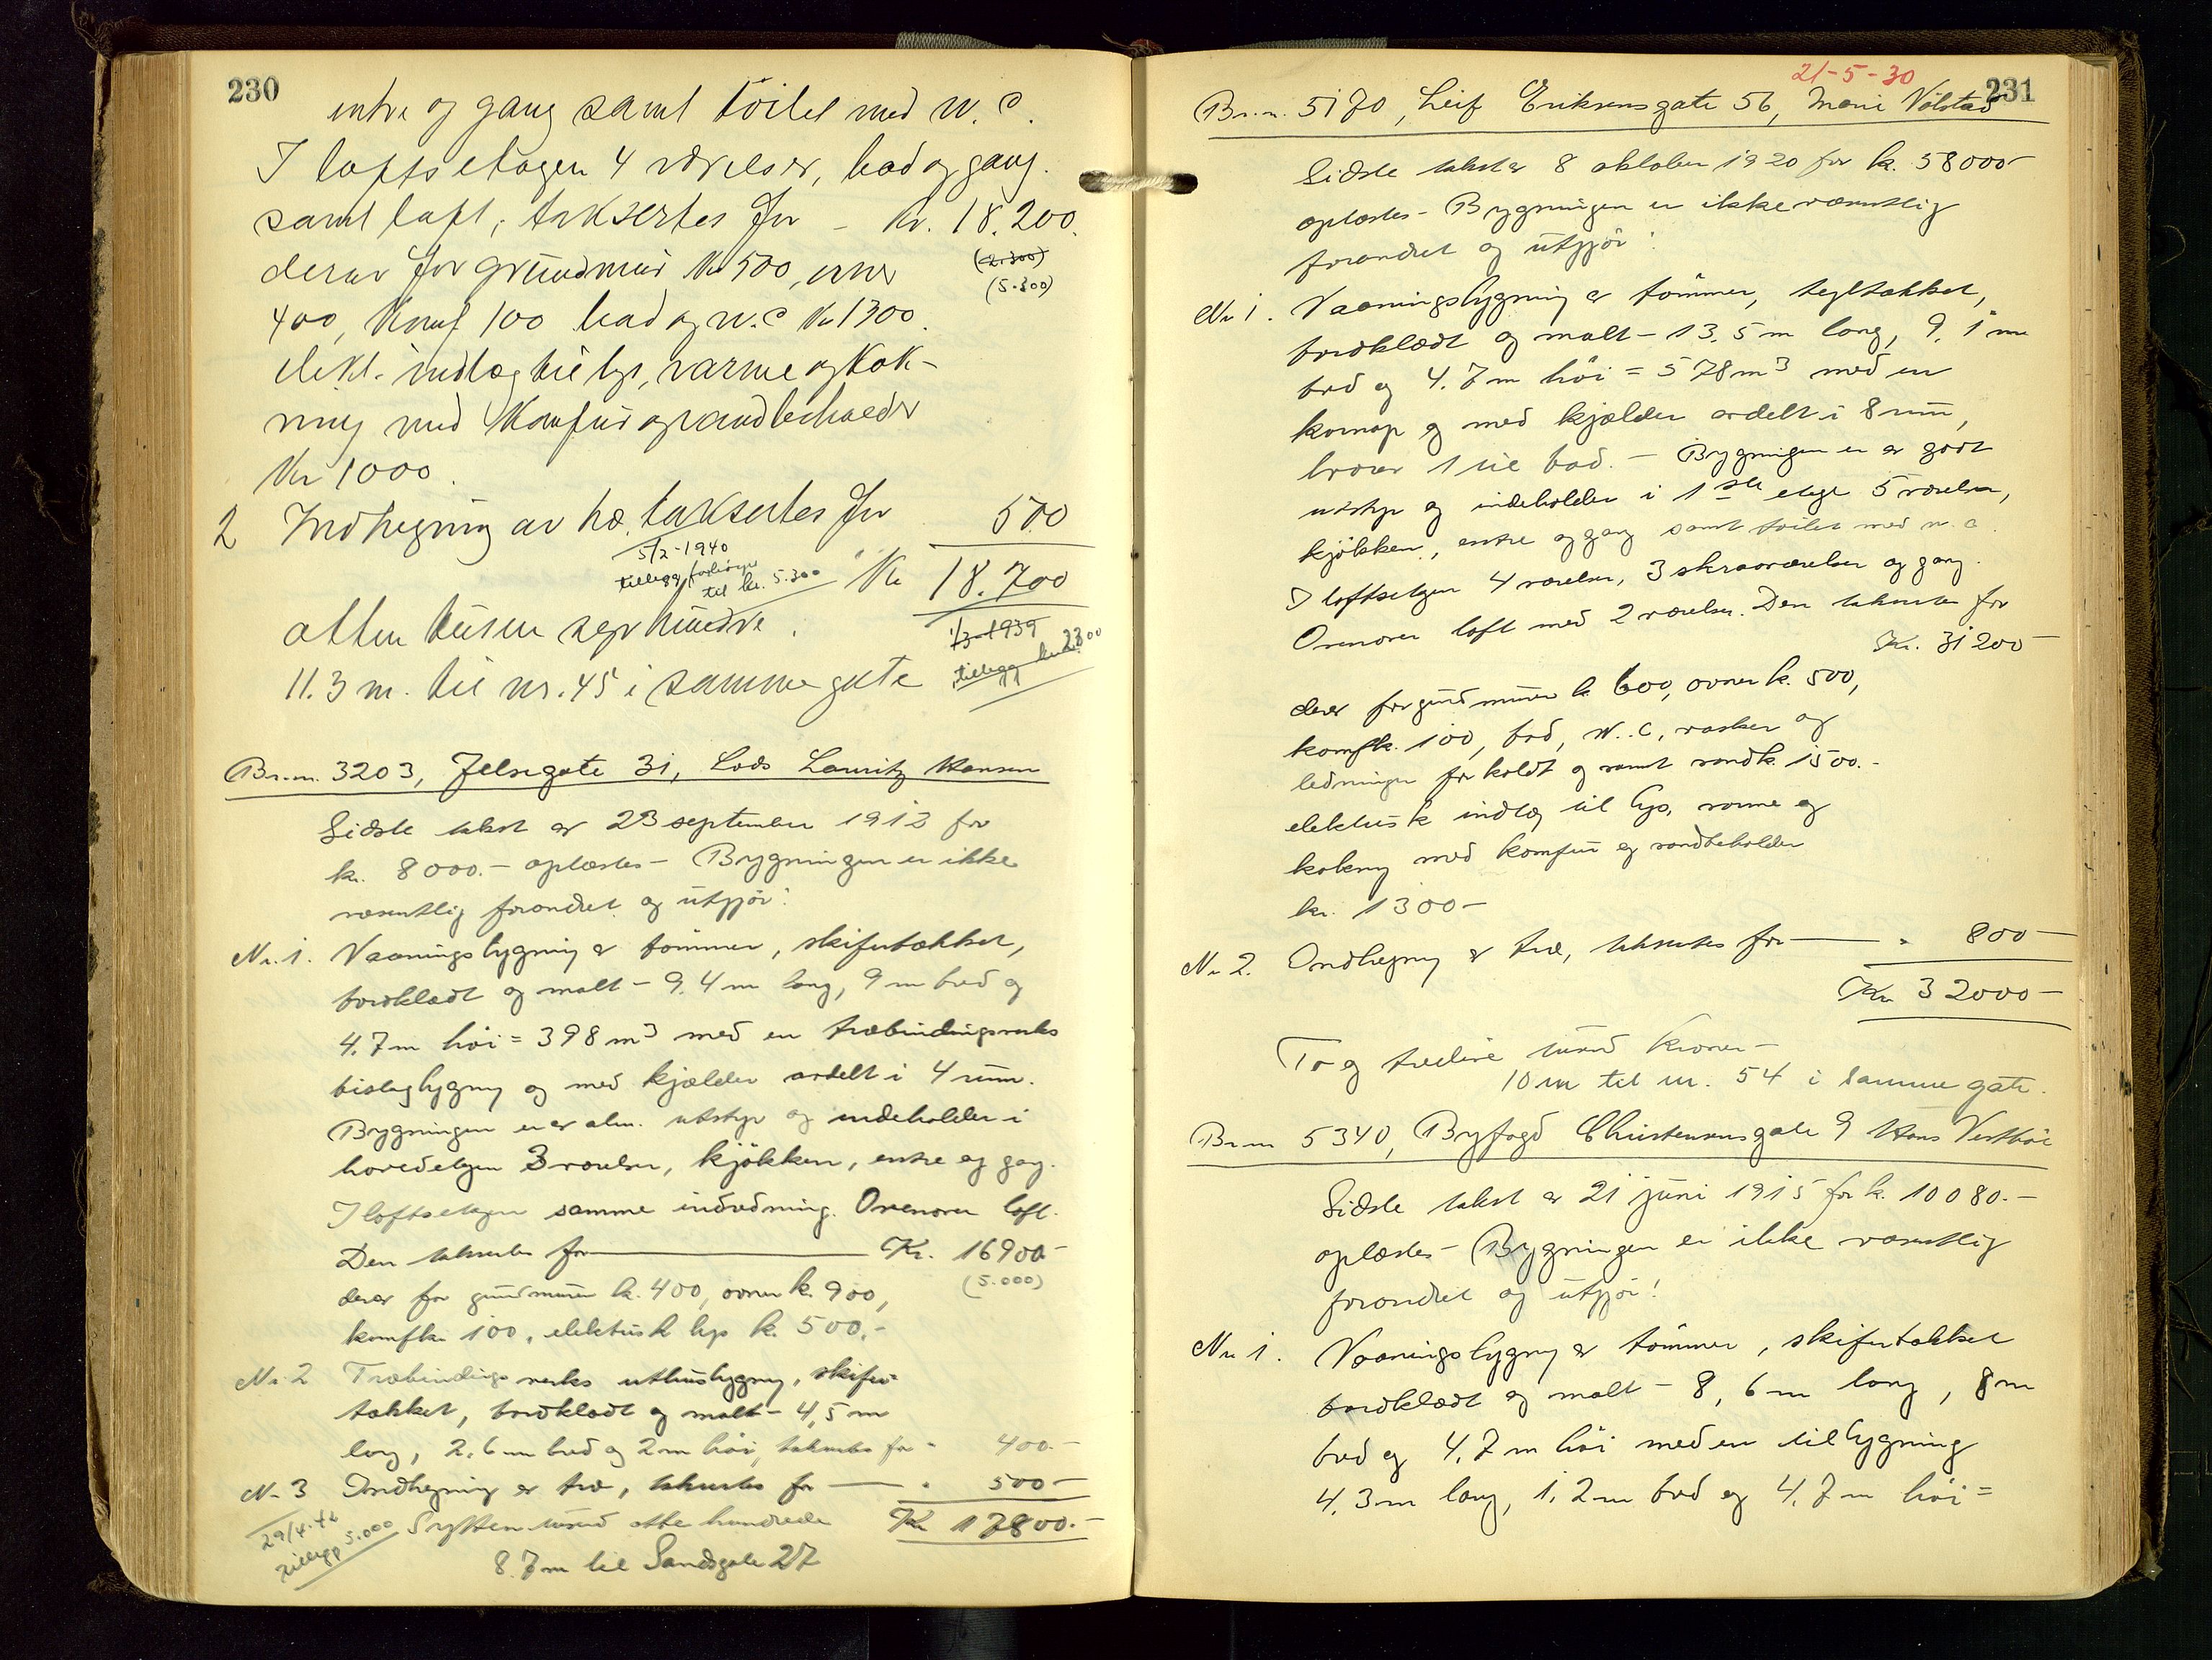 230
entre og gang samt toilet med W.C.
I loftsetagen 4 værelser, bad og gang.
samt loft, taksertes for - Kr. 18.200.
derav for grundmur Kr 500, ovner
(2.300)
(5.300)
400, komf 100 bad og W.C Kr 1300.
elekt. indlæg til lys, varme og kok-
ning med komfur og vandbeholder
Kr 1000.
2 Indhegning av træ taksertes for 500
5/2-1940
tillegg forhøyet
til kr. 5.300
Kr 18.700
atten tusen syv hundre.
1/3-1939
tillegg kr. 2300
11.3 m. til nr. 45 i samme gate
Br.nr. 3203, Jelsegate 31, Lods Lauritz Hansen
Sidste takst av 23 september 1913 for
kr. 8000.- oplæstes - Bygningen er ikke
væsentlig forandret og utgjør:
Nr. 1. Vaaningsbygning av tømmer, skifertækket,
bordklædt og malt - 9.4 m lang, 9 m bred og
4.7 m høi = 398 m3 med en træbindingsverks
bislagbygning og med kjælder avdelt i 4 rum.
Bygningen er av alm. utstyr og indeholder i
hovedetagen 3 værelser, kjøkken, entre og gang.
I loftsetagen samme indredning. Ovenover loft.
Den takseres for Kr. 16900-
(5.000)
derav for grundmuren kr. 400, ovner kr. 900,
komf kr 100, elektrisk lys kr. 500.-
Nr. 2 Træbindingsverks uthusbygning, skifer-
tækket, bordklædt og malt - 4,5 m
lang, 2.6 m bred og 2 m høi, takseres for " 400.-
Nr. 3 Indhegning av træ, takseres for " 500-
Sytten tusind otte hundrede Kr 17800.-
29/4-42
Tillegg 5.000
8.7 m til Sandsgate 27
21-5-30
231
Br.nr. 5170, Leif Eriksensgate 56, Marie Vølstad
Sidste takst av 8 oktober 1920 for kr. 58000-
oplæstes - Bygningen er ikke væsentlig
forandret og utgjør:
Nr 1. Vaaningsbygning av tømmer, tegltækket,
bordklædt og malt - 13.5 m lang, 9.1 m
bred og 4.7 m høi = 578 m3 med en
karnap og med kjælder avdelt i 8 rum,
hvorav 1 til bad. - Bygningen er av godt
utstyr og indeholder i 1ste etage 5 værelser,
kjøkken, entre og gang samt toilet med w.c.
I loftsetagen 4 værelser, 3 skraaværelser og gang.
Ovenover loft med 2 værelser. Den takseres for
Kr. 31200-
derav for grundmuren kr. 600, ovner kr. 500,
komf kr. 100, bad, W.C, vasker og
ledninger for koldt og varmt vand kr. 1500.-
elektrisk indlæg til lys, varme og
kokning med komfur og vandbeholder
kr. 1300-
Nr 2. Indhegning av træ, takseres for " 800-
Kr 32000-
To og tredive tusind kroner -
10 m til nr. 54 i samme gate.
Br.nr 5340, Byfogd Christensensgate 9 Hans Vestbø
Sidste takst av 21 juni 1915 for kr. 10080.-
oplæstes - Bygningen er ikke væsentlig
forandret og utgjør:
Nr 1. Vaaningsbygning av tømmer, skifertækket
bordklædt og malt - 8,6 m lang, 8 m
bred og 4.7 m høi med en tilbygning
4.3 m lang, 1.2 m bred og 4.7 m høi =